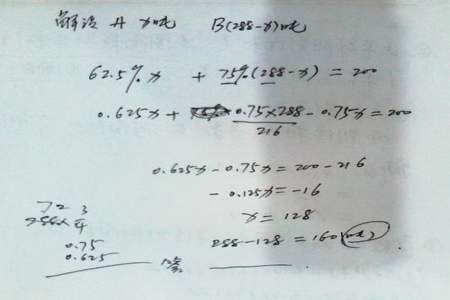 解设 A x吨 B(288-x)吨
62.5%x + 75%(288-x) = 200
0.625x + 0.75×288 - 0.75x = 200
216
0.625x - 0.75x = 200 - 216
- 0.125x = -16
x = 128
288 - 128 = 160(吨)
72 3
288× 4
0.75
0.625
答